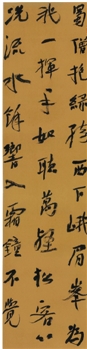 蜀僧抱綠綺西下峨眉峯為
我一揮手如聽萬壑松客心
洗流水餘響入霜鐘不覺